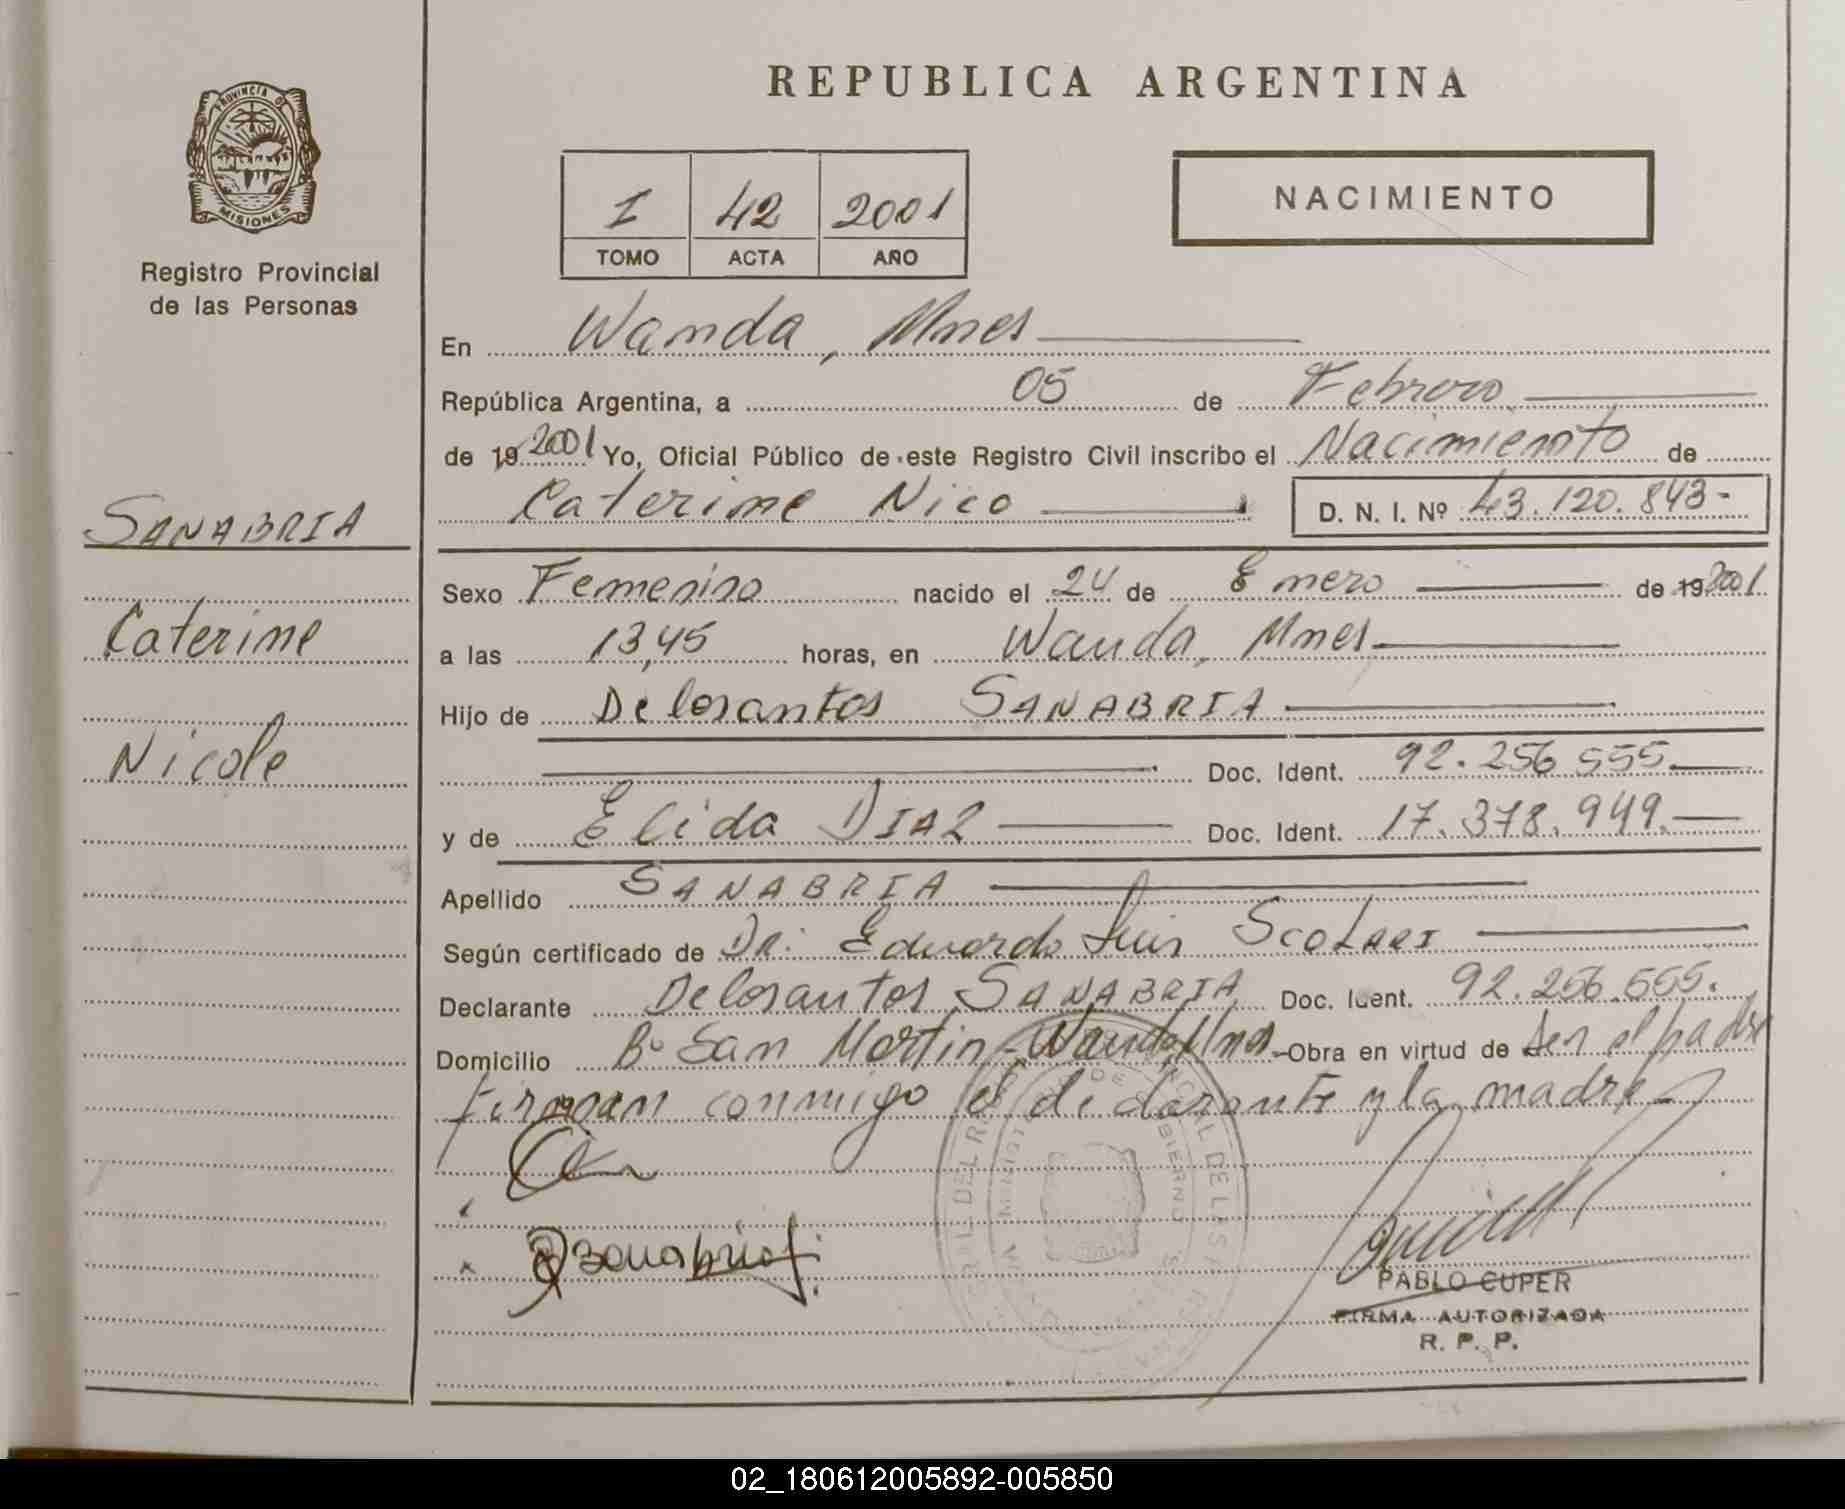 PROVINCIA DE
MISIONES
Registro Provincial
de las Personas
SANABRIA
Caterine
Nicole
REPUBLICA ARGENTINA
I 42 2001
TOMO ACTA AÑO
NACIMIENTO
En Wanda, Mnes
República Argentina, a 05 de Febrero
de 19 2001 Yo, Oficial Público de este Registro Civil inscribo el Nacimiento de
Caterine Nico D. N. I. Nº 43.120.843-
Sexo Femenino nacido el 24 de Enero de 19 2001
a las 13,45 horas, en Wanda, Mnes
Hijo de Delosantos SANABRIA
Doc. Ident. 92.256 555.
y de Elida DIAZ Doc. Ident. 17.378.949.
Apellido SANABRIA
Según certificado de Dr: Eduardo Luis SCOLARI
Declarante Delosantos SANABRIA Doc. Ident. 92.256.555.
Domicilio Bº San Martin-Wanda Mnes-Obra en virtud de ser el padre
Firman conmigo el declarante y la madre-
PABLO CUPER
FIRMA AUTORIZADA
R. P. P.
02_180612005892-005850